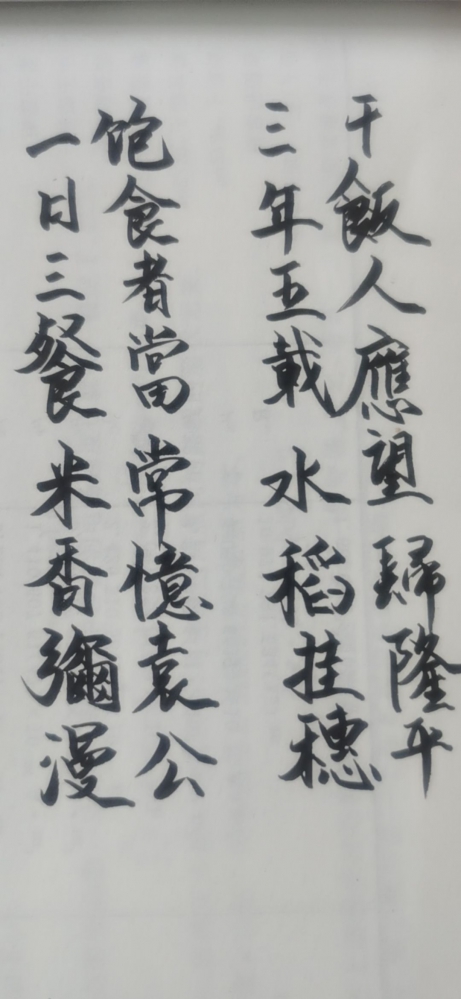 一日三餐米香彌漫
饱食者當常憶袁公
三年五載水稻挂穗
干飯人應望歸隆平